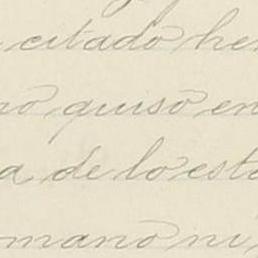 citado her
no quiso en
a de lo esta
mano ni